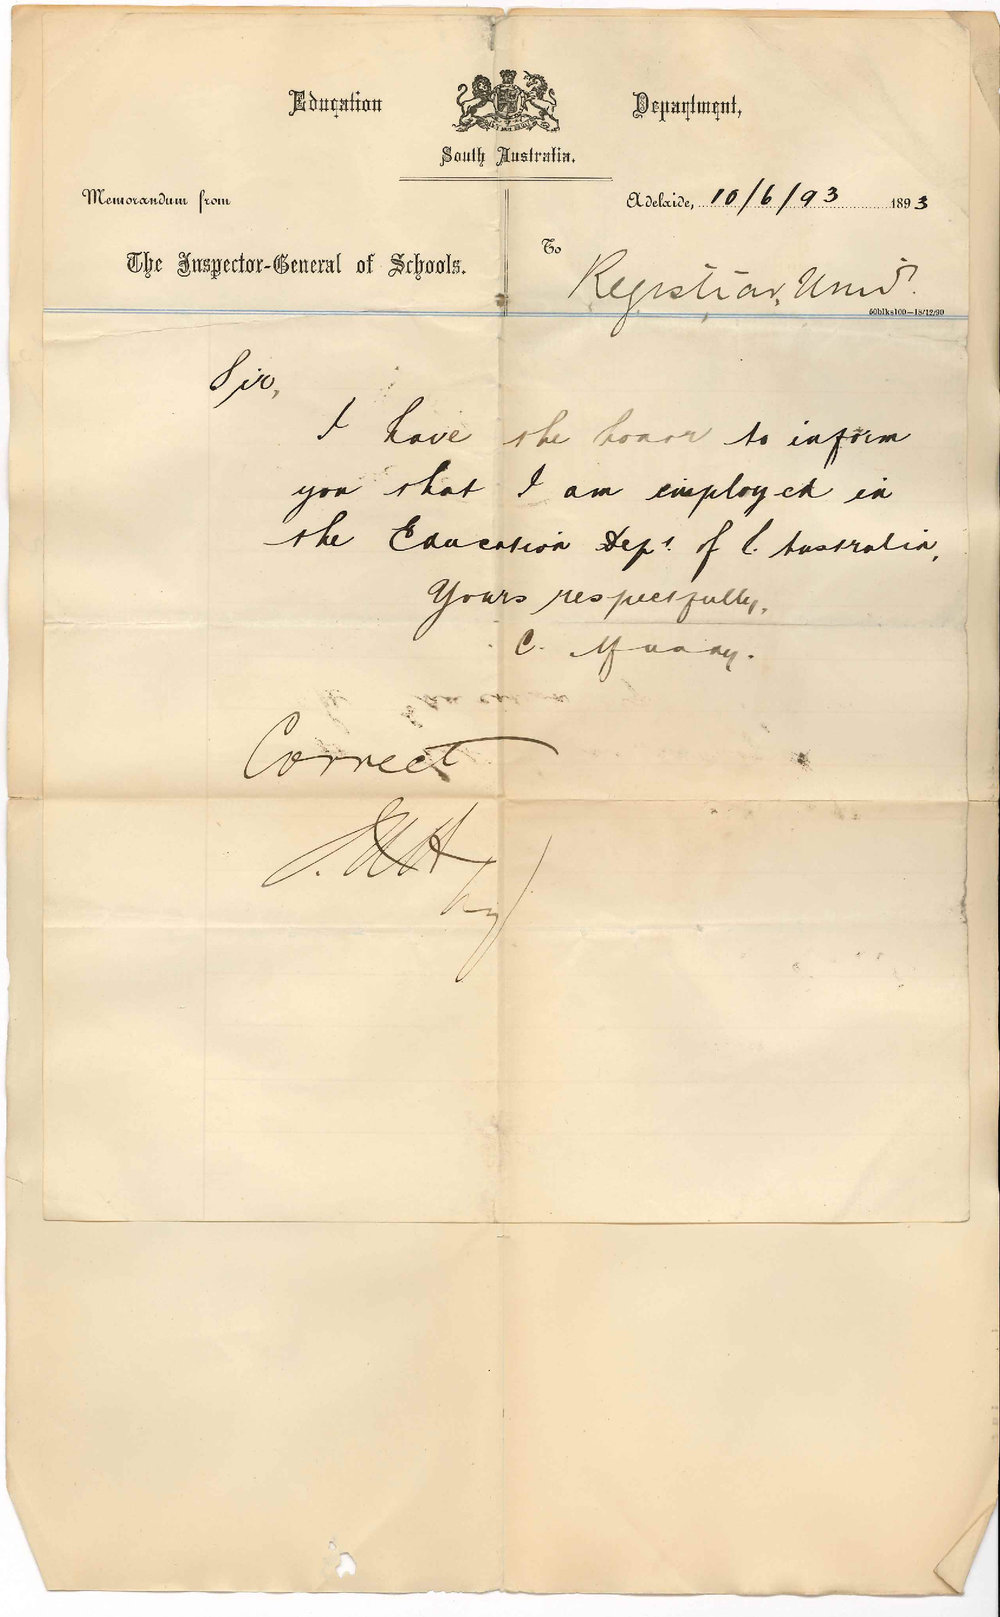 Education Department,
South Australia.
Memorandum from
Adelaide, 10/6/93 1893
The Inspector-General of Schools.
To
Registrar, Univ.
60blks100—18/12/90
Sir,
I have the honor to inform
you that I am employed in
the Education Dept. of S. Australia,
Yours respectfully,
C.
Correct